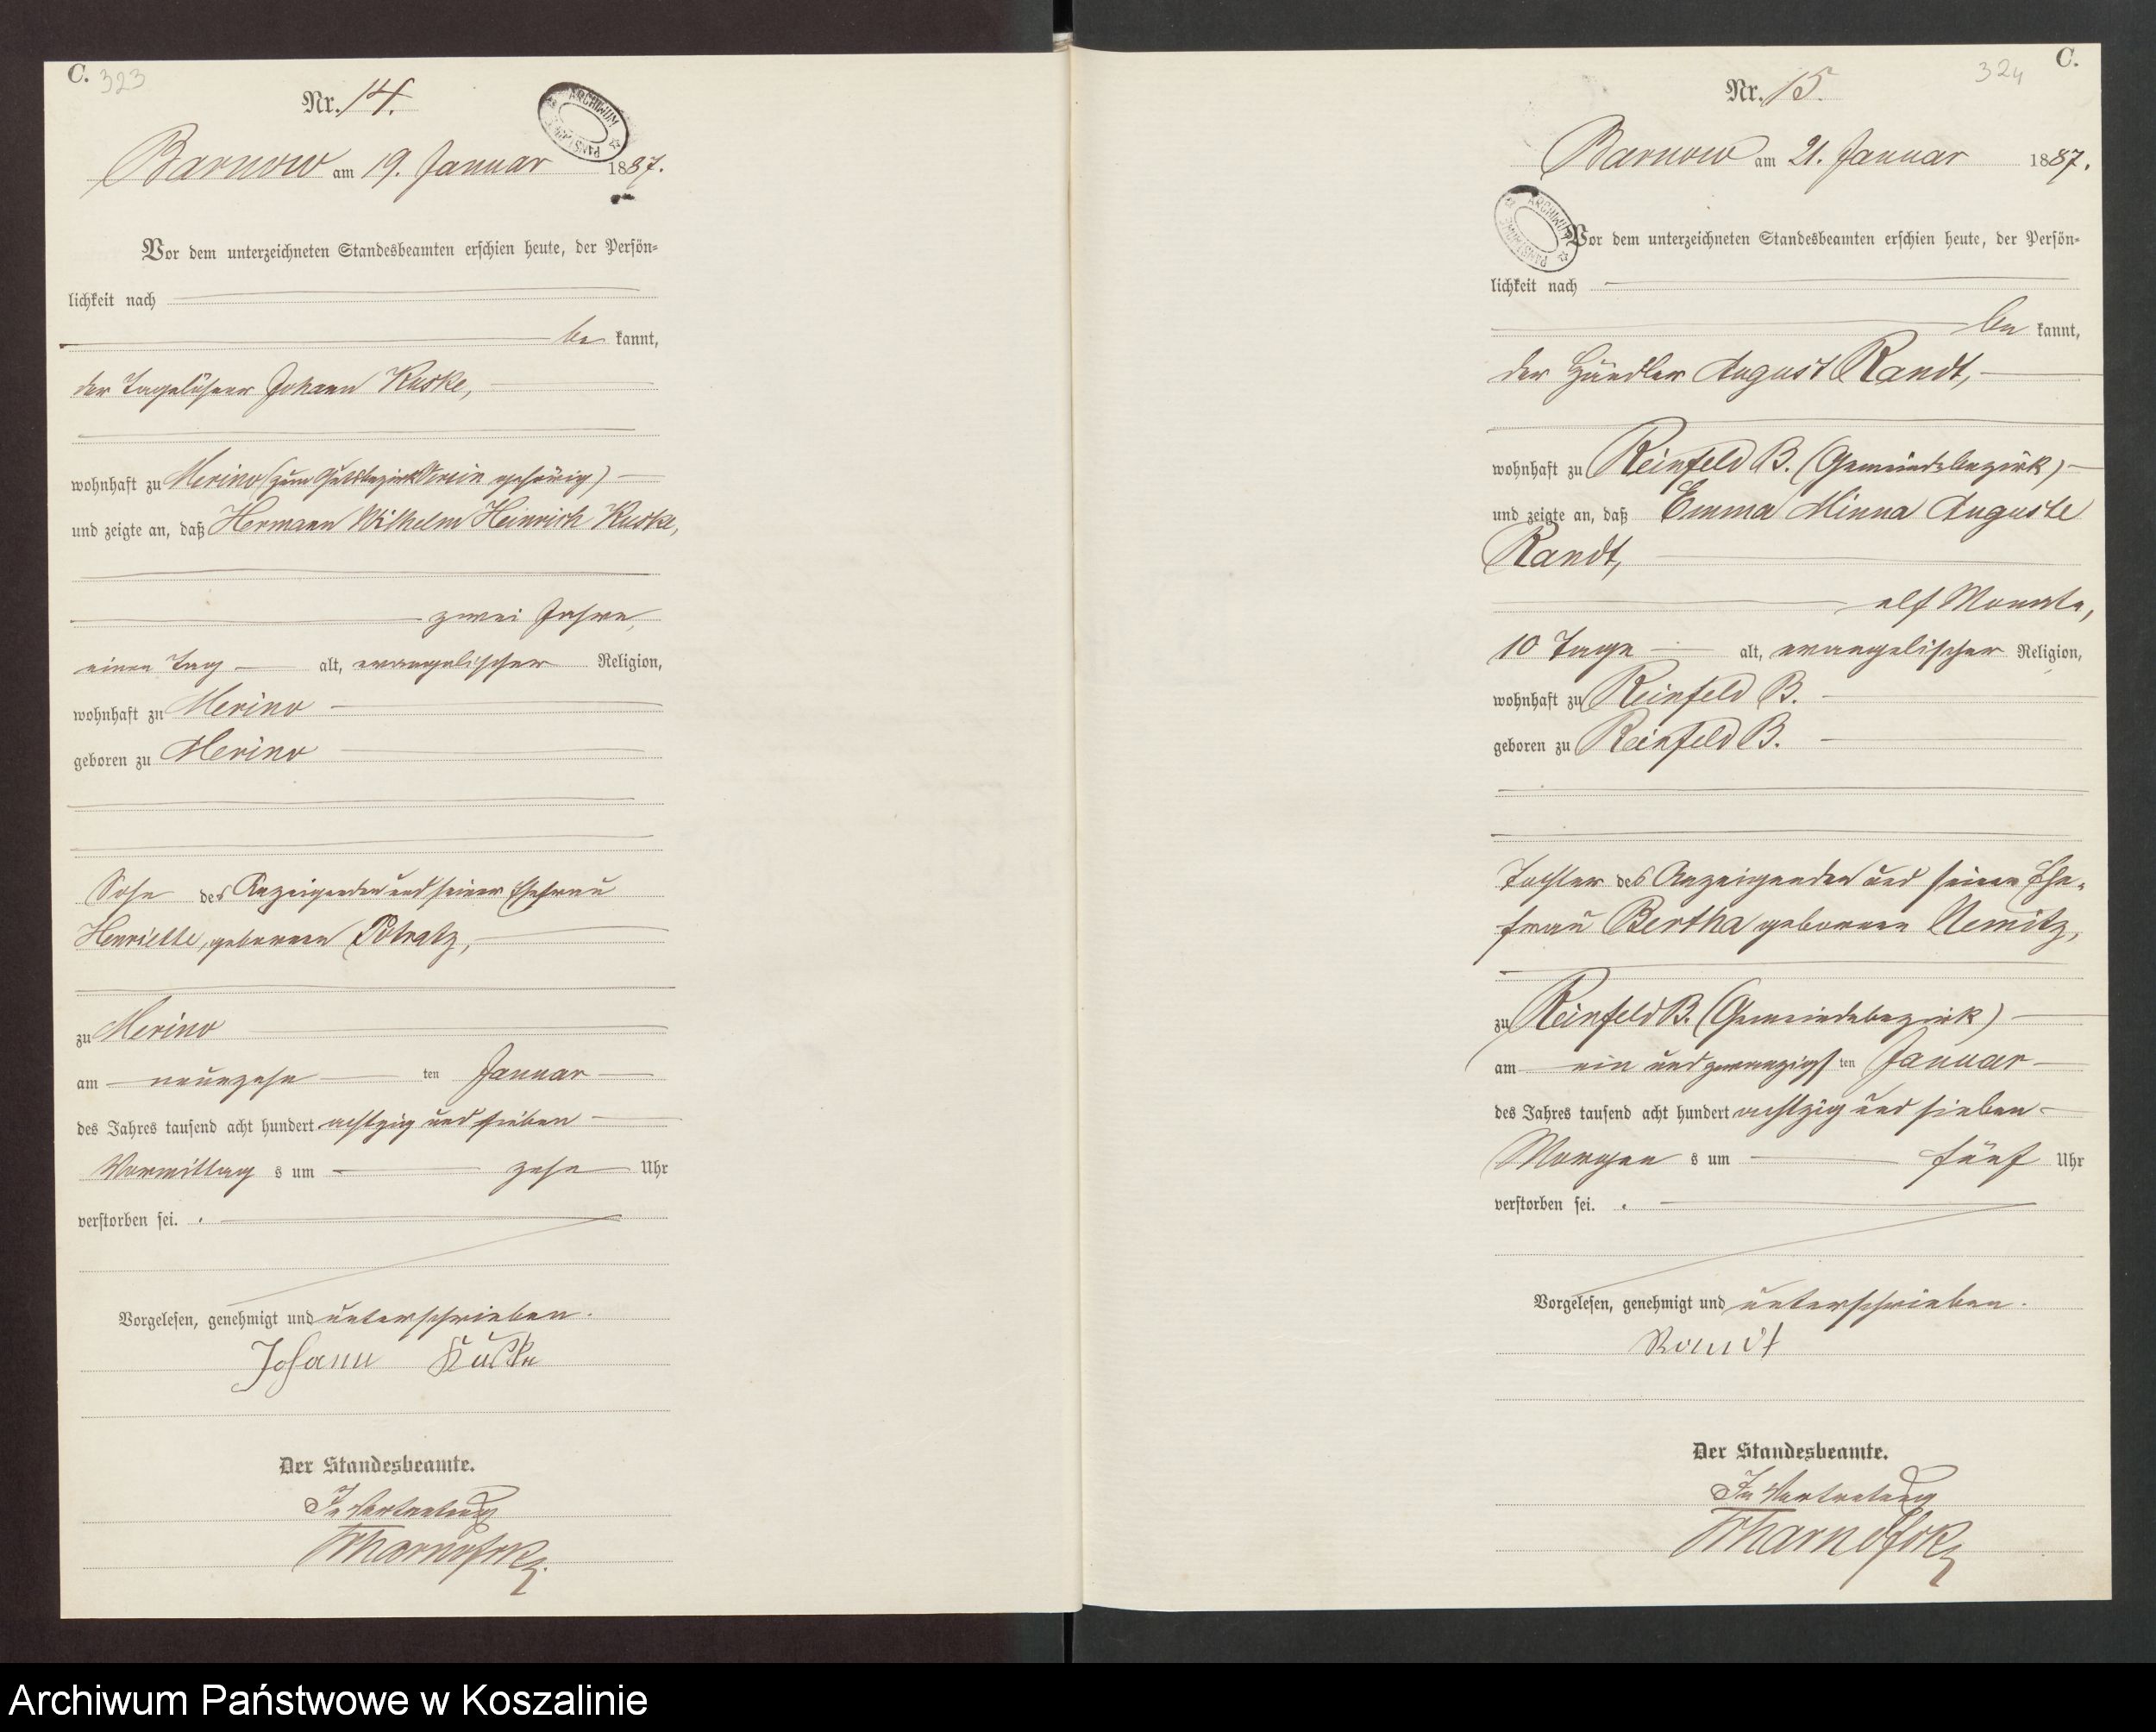 C. 323
Nr. 14.
ARCHIWUM PAŃSTWOWE
Barnow am 19. Januar 1887.
Vor dem unterzeichneten Standesbeamten erschien heute, der Persön-
lichkeit nach
be kannt,
der Tagelöhner Johann Kuske,
wohnhaft zu Merino (zum Gutsbezirk Versin gehörig)
und zeigte an, daß Hermann Wilhelm Heinrich Kuske,
zwei Jahre,
einen Tag alt, evangelischer Religion,
wohnhaft zu Merino
geboren zu Merino
Sohn des Anzeigenden und seiner Ehefrau
Henriette, geborenen Potratz,
zu Merino
am neunzehn ten Januar
des Jahres tausend acht hundert achtzig und sieben
Vormittag s um zehn Uhr
verstorben sei.
Vorgelesen, genehmigt und unterschrieben.
Johann Kuske
Der Standesbeamte.
In Vertretung
324 C.
Nr. 15.
Barnow am 21. Januar 1887.
ARCHIWUM PAŃSTWOWE
Vor dem unterzeichneten Standesbeamten erschien heute, der Persön-
lichkeit nach
be kannt,
der Händler August Randt,
wohnhaft zu Reinfeld B. (Gemeindebezirk)
und zeigte an, daß Emma Minna Auguste
Randt,
elf Monate,
10 Tage alt, evangelischer Religion,
wohnhaft zu Reinfeld B.
geboren zu Reinfeld B.
Tochter des Anzeigenden und seiner Ehe-
frau Bertha geborenen Nemitz,
zu Reinfeld B. (Gemeindebezirk)
am ein und zwanzigs ten Januar
des Jahres tausend acht hundert achtzig und sieben
Morgen s um fünf Uhr
verstorben sei.
Vorgelesen, genehmigt und unterschrieben.
Randt
Der Standesbeamte.
In Vertretung
Archiwum Państwowe w Koszalinie